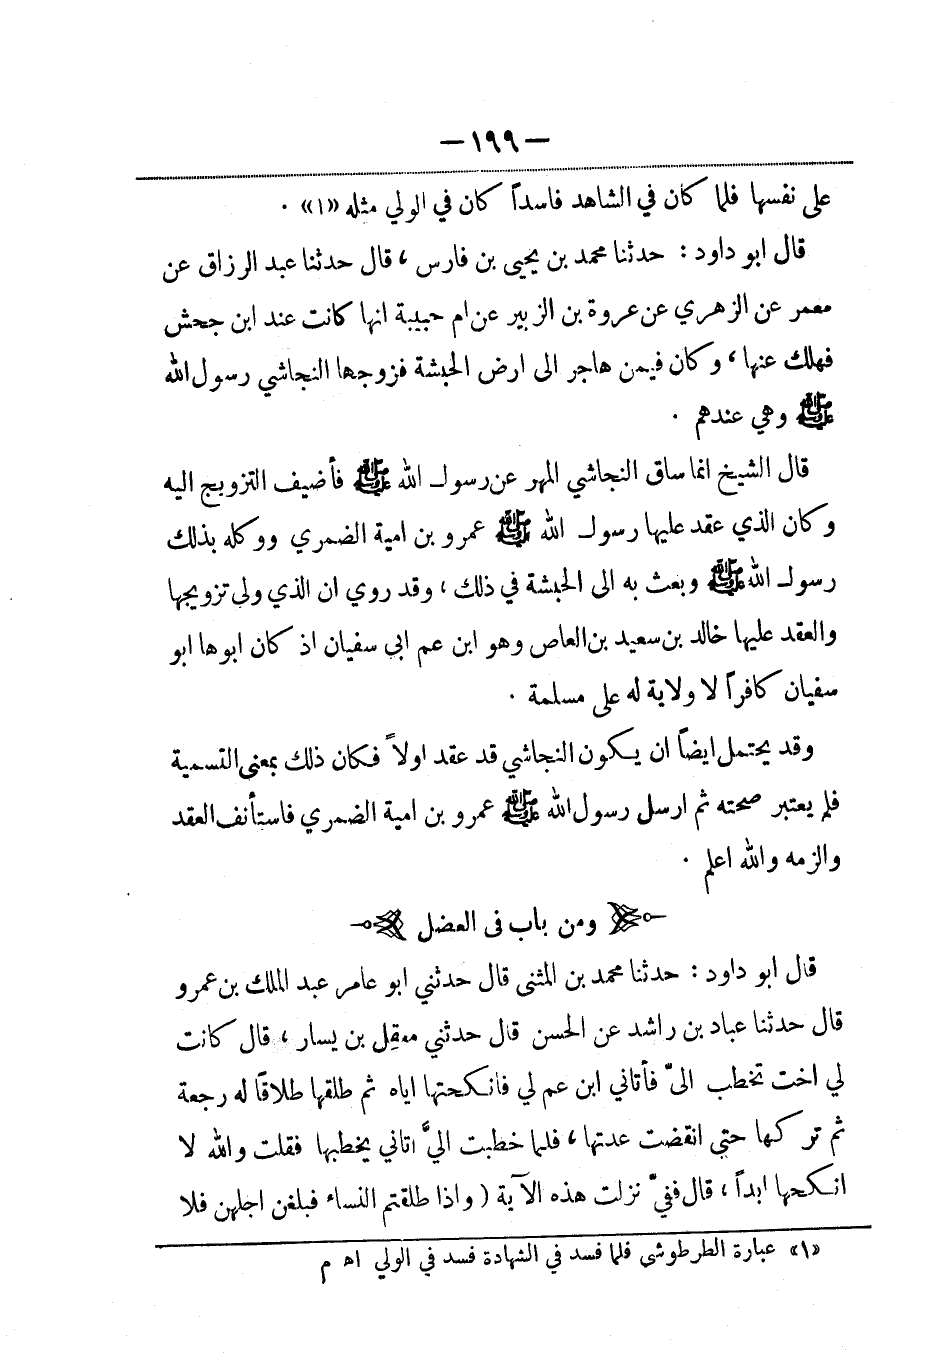 — ١٩٩ —
على نفسها فلما كان في الشاهد فاسداً كان في الولي مثله «١» ٠
قال ابو داود : حدثنا محمد بن يحيى بن فارس ، قال حدثنا عبد الرزاق عن
معمر عن الزهري عن عروة بن الزبير عن ام حبيبة انها كانت عند ابن جحش
فهلك عنها ، وكان فيمن هاجر الى ارض الحبشة فزوجها النجاشي رسول الله
ﷺ وهي عندهم ٠
قال الشيخ انما ساق النجاشي المهر عن رسول الله ﷺ فأضيف التزويج اليه
وكان الذي عقد عليها رسول الله ﷺ عمرو بن امية الضمري ووكله بذلك
رسول الله ﷺ وبعث به الى الحبشة في ذلك ، وقد روي ان الذي ولى تزويجها
والعقد عليها خالد بن سعيد بن العاص وهو ابن عم ابي سفيان اذ كان ابوها ابو
سفيان كافراً لا ولاية له على مسلمة ٠
وقد يحتمل ايضاً ان يكون النجاشي قد عقد اولاً فكان ذلك بمعنى التسمية
فلم يعتبر صحته ثم ارسل رسول الله ﷺ عمرو بن امية الضمري فاستأنف العقد
والزمه والله اعلم ٠
ومن باب في العضل
قال ابو داود : حدثنا محمد بن المثنى قال حدثني ابو عامر عبد الملك بن عمرو
قال حدثنا عباد بن راشد عن الحسن قال حدثني معقل بن يسار ، قال كانت
لي اخت تخطب اليّ فأتاني ابن عم لي فانكحتها اياه ثم طلقها طلاقاً له رجعة
ثم تركها حتى انقضت عدتها ، فلما خطبت اليَّ اتاني يخطبها فقلت والله لا
انكحها ابداً ، قال ففيّ نزلت هذه الآية ( واذا طلقتم النساء فبلغن اجلهن فلا
«١» عبارة الطرطوشي فلما فسد في الشهادة فسد في الولي اه م